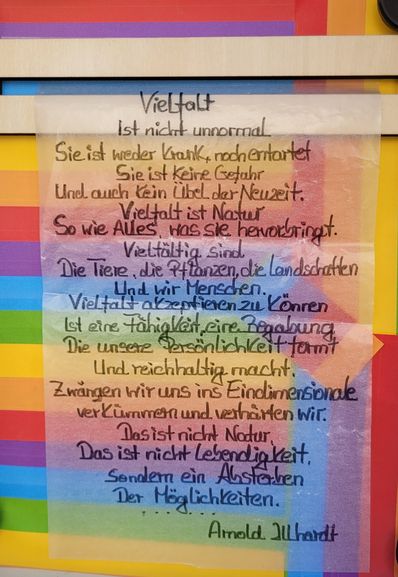 Vielfalt
Ist nicht unnormal
Sie ist weder krank, noch entartet
Sie ist keine Gefahr
Und auch kein Übel der Neuzeit.
Vielfalt ist Natur
So wie Alles, was sie hervorbringt.
Vielfältig sind
Die Tiere, die Pflanzen, die Landschaften
Und wir Menschen.
Vielfalt akzeptieren zu können
Ist eine Fähigkeit, eine Begabung,
Die unsere Persönlichkeit formt
Und reichhaltig macht.
Zwängen wir uns ins Eindimensionale
verkümmern und verhärten wir.
Das ist nicht Natur,
Das ist nicht Lebendigkeit,
Sondern ein Absterben
Der Möglichkeiten.
. . . . . .
Arnold Illhardt